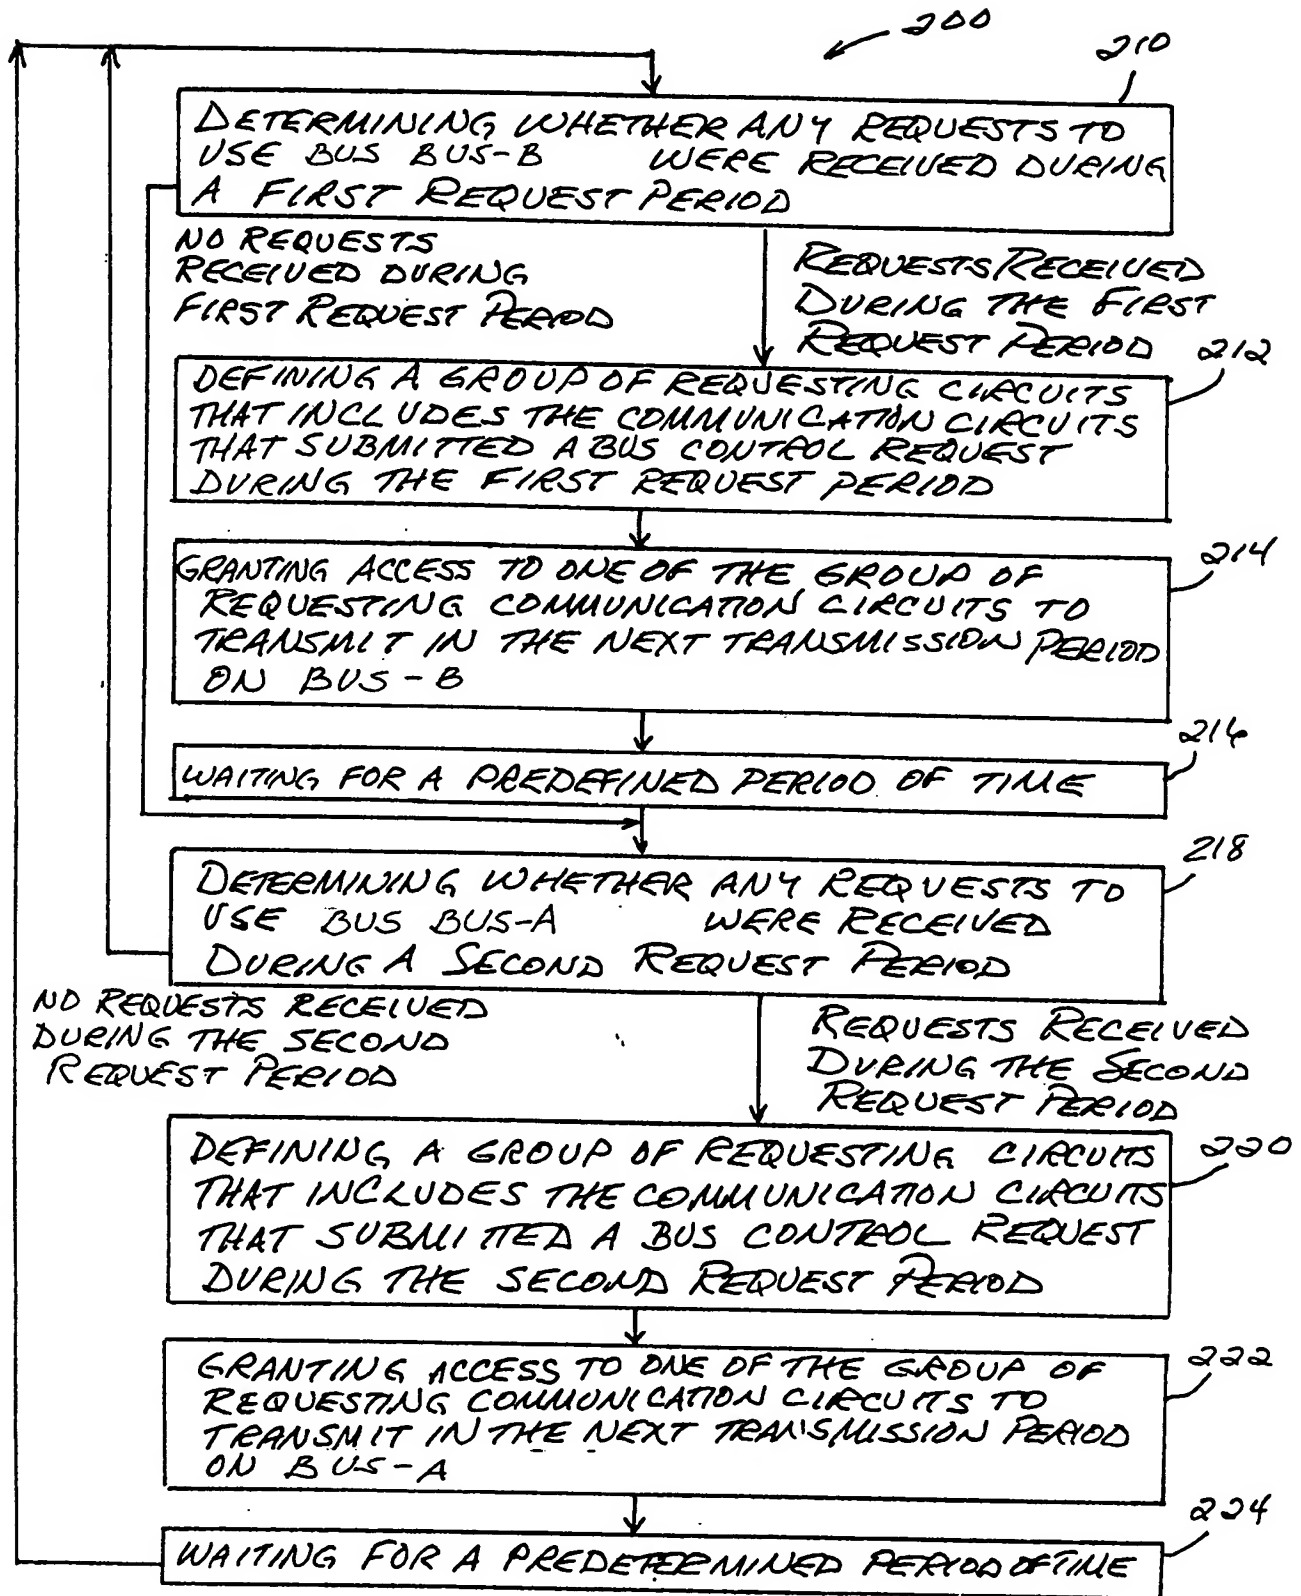 200
210
DETERMINING WHETHER ANY REQUESTS TO
USE BUS BUS-B WERE RECEIVED DURING
A FIRST REQUEST PERIOD
NO REQUESTS
RECEIVED DURING
FIRST REQUEST PERIOD
REQUESTS RECEIVED
DURING THE FIRST
REQUEST PERIOD
212
DEFINING A GROUP OF REQUESTING CIRCUITS
THAT INCLUDES THE COMMUNICATION CIRCUITS
THAT SUBMITTED A BUS CONTROL REQUEST
DURING THE FIRST REQUEST PERIOD
214
GRANTING ACCESS TO ONE OF THE GROUP OF
REQUESTING COMMUNICATION CIRCUITS TO
TRANSMIT IN THE NEXT TRANSMISSION PERIOD
ON BUS-B
216
WAITING FOR A PREDEFINED PERIOD OF TIME
218
DETERMINING WHETHER ANY REQUESTS TO
USE BUS BUS-A WERE RECEIVED
DURING A SECOND REQUEST PERIOD
NO REQUESTS RECEIVED
DURING THE SECOND
REQUEST PERIOD
REQUESTS RECEIVED
DURING THE SECOND
REQUEST PERIOD
220
DEFINING A GROUP OF REQUESTING CIRCUITS
THAT INCLUDES THE COMMUNICATION CIRCUITS
THAT SUBMITTED A BUS CONTROL REQUEST
DURING THE SECOND REQUEST PERIOD
222
GRANTING ACCESS TO ONE OF THE GROUP OF
REQUESTING COMMUNICATION CIRCUITS TO
TRANSMIT IN THE NEXT TRANSMISSION PERIOD
ON BUS-A
224
WAITING FOR A PREDETERMINED PERIOD OF TIME